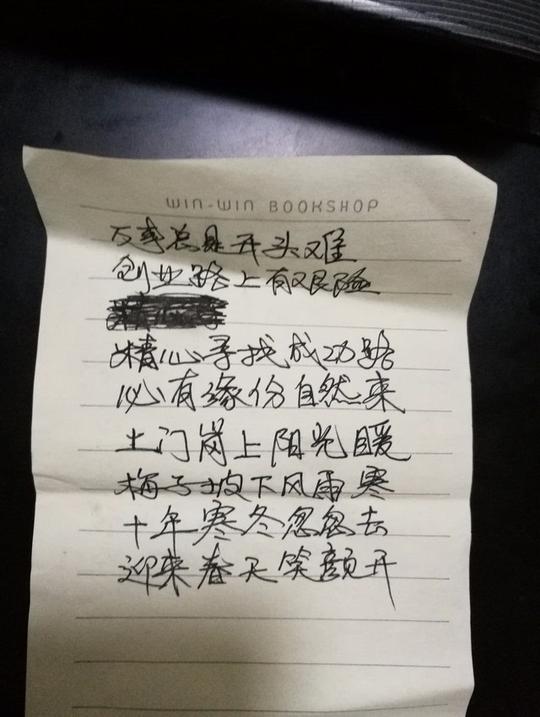 WIN-WIN BOOKSHOP
万事总是开头难
创业路上有艰险
精心寻找成功路
必有缘份自然来
土门岗上阳光暖
梅子坡下风雨寒
十年寒冬忽忽去
迎来春天笑颜开